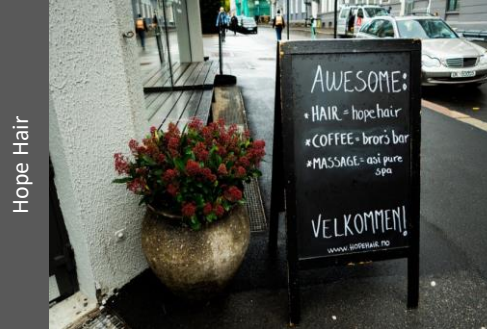 Hope Hair
AWESOME:
* HAIR = hopehair
* COFFEE = brors bar
* MASSAGE = asi pure
spa
VELKOMMEN!
WWW.HOPEHAIR.NO